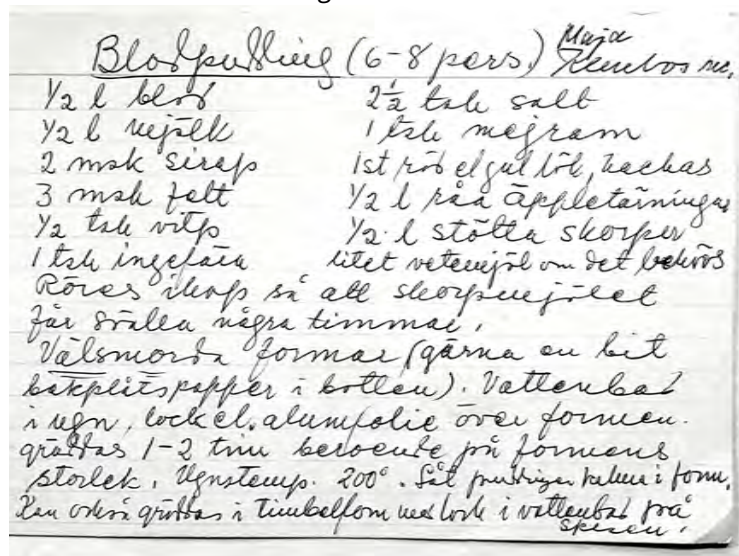 Blodpudding (6-8 pers.) Maja rec.
1/2 l blod 2 1/2 tsk salt
1/2 l mjölk 1 tsk mejram
2 msk sirap 1 st röd el gul lök, hackas
3 msk fett 1/2 l råa äppletärningar
1/2 tsk vitp 1/2 l stötta skorpor
1 tsk ingefära litet vetemjöl om det behövs
Röres ihop så att skorpmjölet
får svälla några timmar.
Välsmorda formar (gärna en bit
bakplåtspapper i botten). Vattenbad
i ugn, lock el. alumfolie över formen.
gräddas 1-2 tim beroende på formens
storlek. Ugnstemp. 200°. Låt puddingen kallna i form.
Kan också gräddas i timbalform med lock i vattenbad på
spisen.